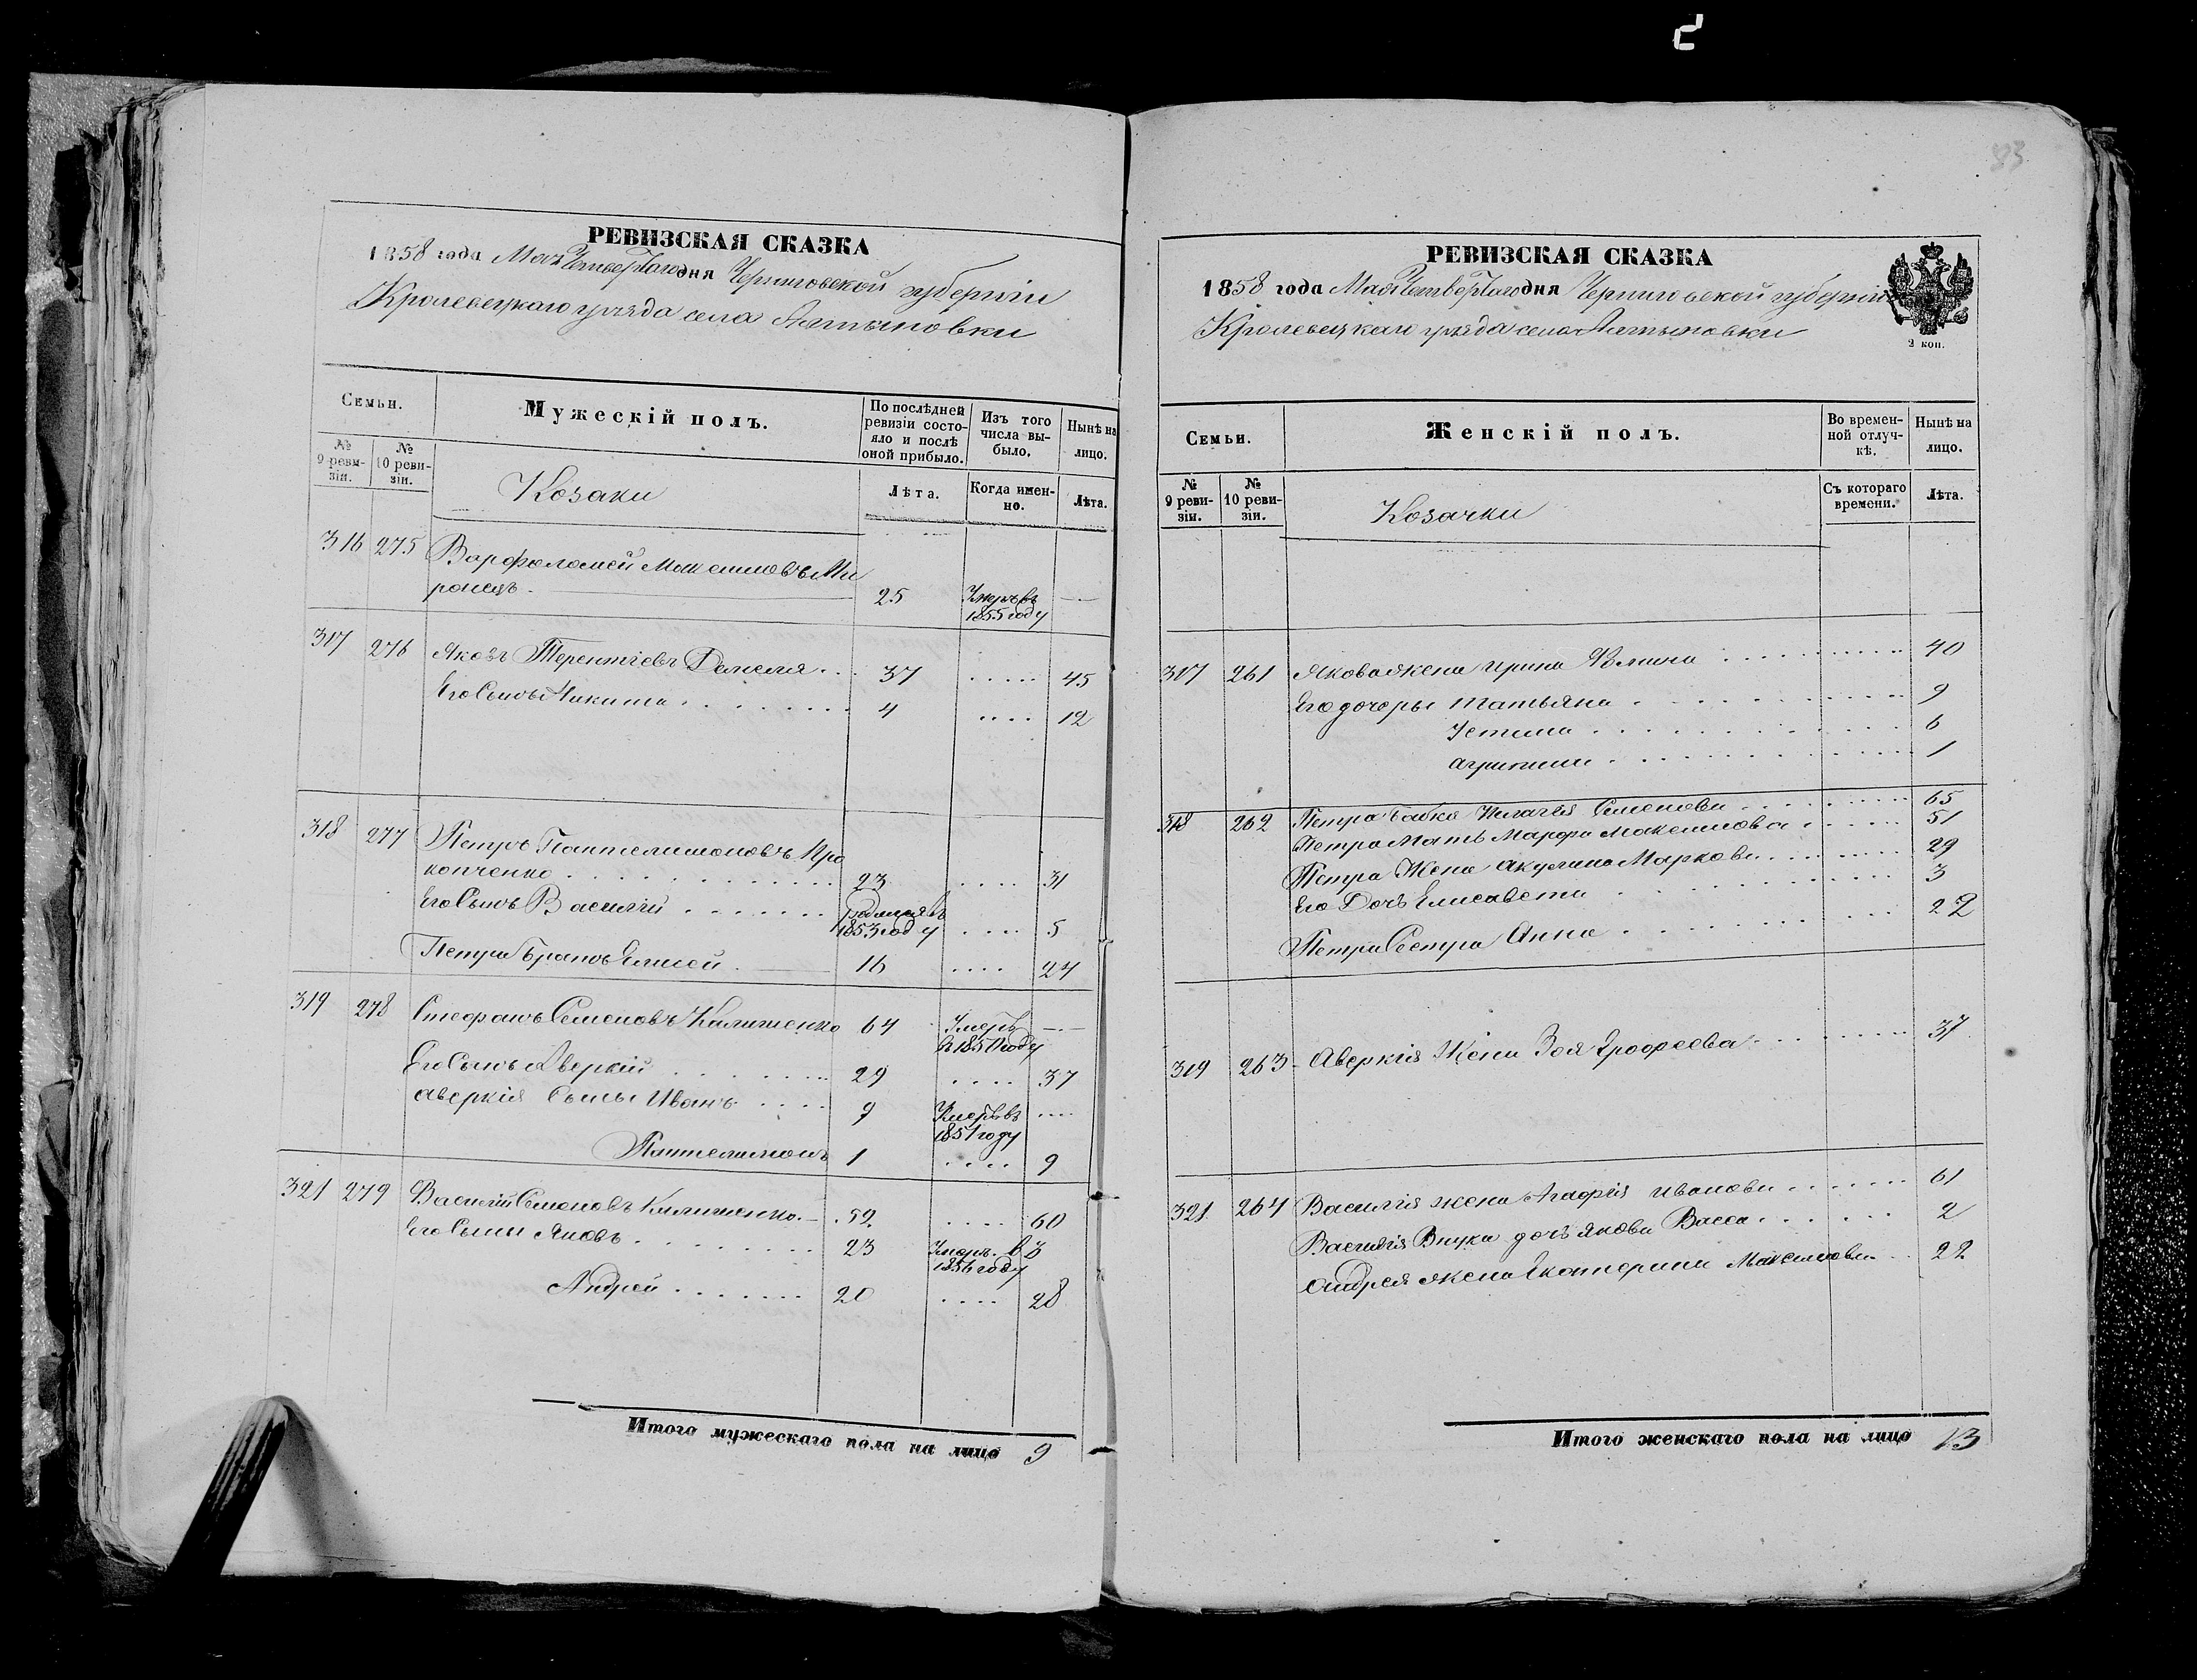 2
83
РЕВИЗСКАЯ СКАЗКА
1858 года Мая Четвертаго дня Черниговской губерніи
Кролевецкаго уезда села Алтыновки
Семьи.
Мужескій полъ.
По послѣдней ревизіи состояло и послѣ оной прибыло.
Изъ того числа выбыло.
Нынѣ на лицо.
№ 9 ревизіи.
№ 10 ревизіи.
Козаки
Лѣта.
Когда именно.
Лѣта.
316 275 Варфоломей Максимовъ Ми
ронецъ 25 Умеръ въ
1855 году
317 276 Яковъ Терентіевъ 37 45
Его Сынъ Никита 4 12
318 277 Петръ Пантелимоновъ Про
копченко 23 31
Его Сынъ Василій Родился въ
1853 году 5
Петра Братъ Елисей 16 24
319 278 Стефанъ Семеновъ Калименко 64 Умеръ
въ 1850 году
Его Сынъ Аверкій 29 37
Аверкія Сыны Иванъ 9 Умеръ въ
1851 году
Пантелимонъ 1 9
321 279 Василій Семеновъ Калименко 52 60
Его Сыны Яковъ 23 Умеръ въ
1856 году
Андрей 20 28
Итого мужескаго пола на лицо 9
РЕВИЗСКАЯ СКАЗКА
1858 года Мая Четвертаго дня Черниговской губерніи
Кролевецкаго уезда села Алтыновки
2 коп.
Семьи.
Женскій полъ.
Во временной отлучкѣ.
Нынѣ на лицо.
№ 9 ревизіи.
№ 10 ревизіи.
Козачки
Съ котораго времени.
Лѣта.
317 261 Якова жена Ирина 40
Его дочеры Татьяна 9
Устина 6
1
318 262 Петра бабка Пелагея Семенова 65
Петра Мать Марфа Максимова 51
Петра Жена Акулина Маркова 29
Его Дочь Елисавета 3
Петра Сестра Анна 22
319 263 Аверкія Жена Зоя Ерофеева 37
321 264 Василія жена Агафія Иванова 61
Василія Внука дочь Якова Васса 2
Андрея жена Екатерина Максимова 22
Итого женскаго пола на лицо 13